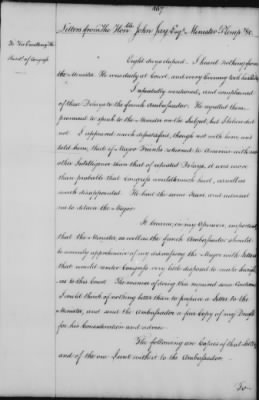 467
Letters from The Hon'ble John Jay Esqr. Minister Plenip. &c.
To His Excellency the
Presidt. of Congress
Eight days elapsed. I heard nothing from
the Minister. He was daily at Court, and every Evening took
I repeatedly mentioned, and complained
of these Delays to the french Ambassador. He regretted them,
promised to speak to the Minister on the Subject, but I believe did
not. I appeared much dissatisfied, though not with him, and
told him, that if Major Franks returned to America with no
other Intelligence than that of repeated Delays, it was more
than probable that Congress would be much hurt, as well as
much disappointed. He had the same Fears, and advised
me to detain the Major.
It became, in my Opinion, important,
that the Minister, as well as the french Ambassador should
be equally apprehensive of my dismissing the Major with letters
that would render Congress very little disposed to
as to this Court. The manner of doing this required some Caution.
I could think of nothing better than to prepare a letter to the
Minister, and send the Ambassador a fair Copy of my Draft
for his Consideration and advice.
The following are Copies of that letter,
and of the one I sent with it to the Ambassador.